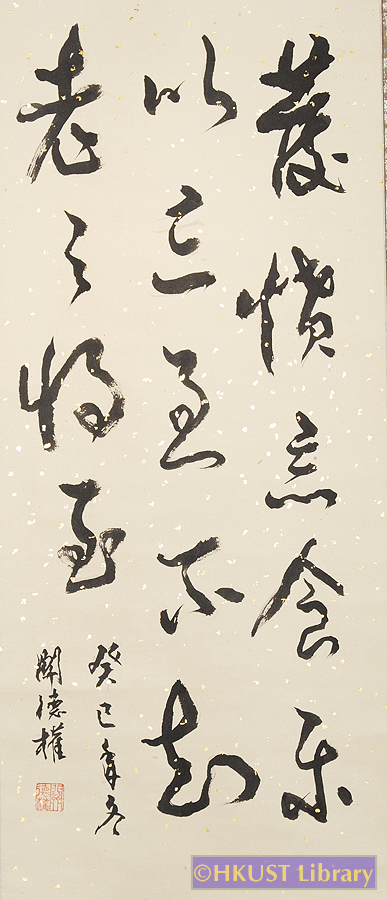 發憤忘食樂
以忘憂不知
老之將至
癸巳年冬
關德權
©HKUST Library